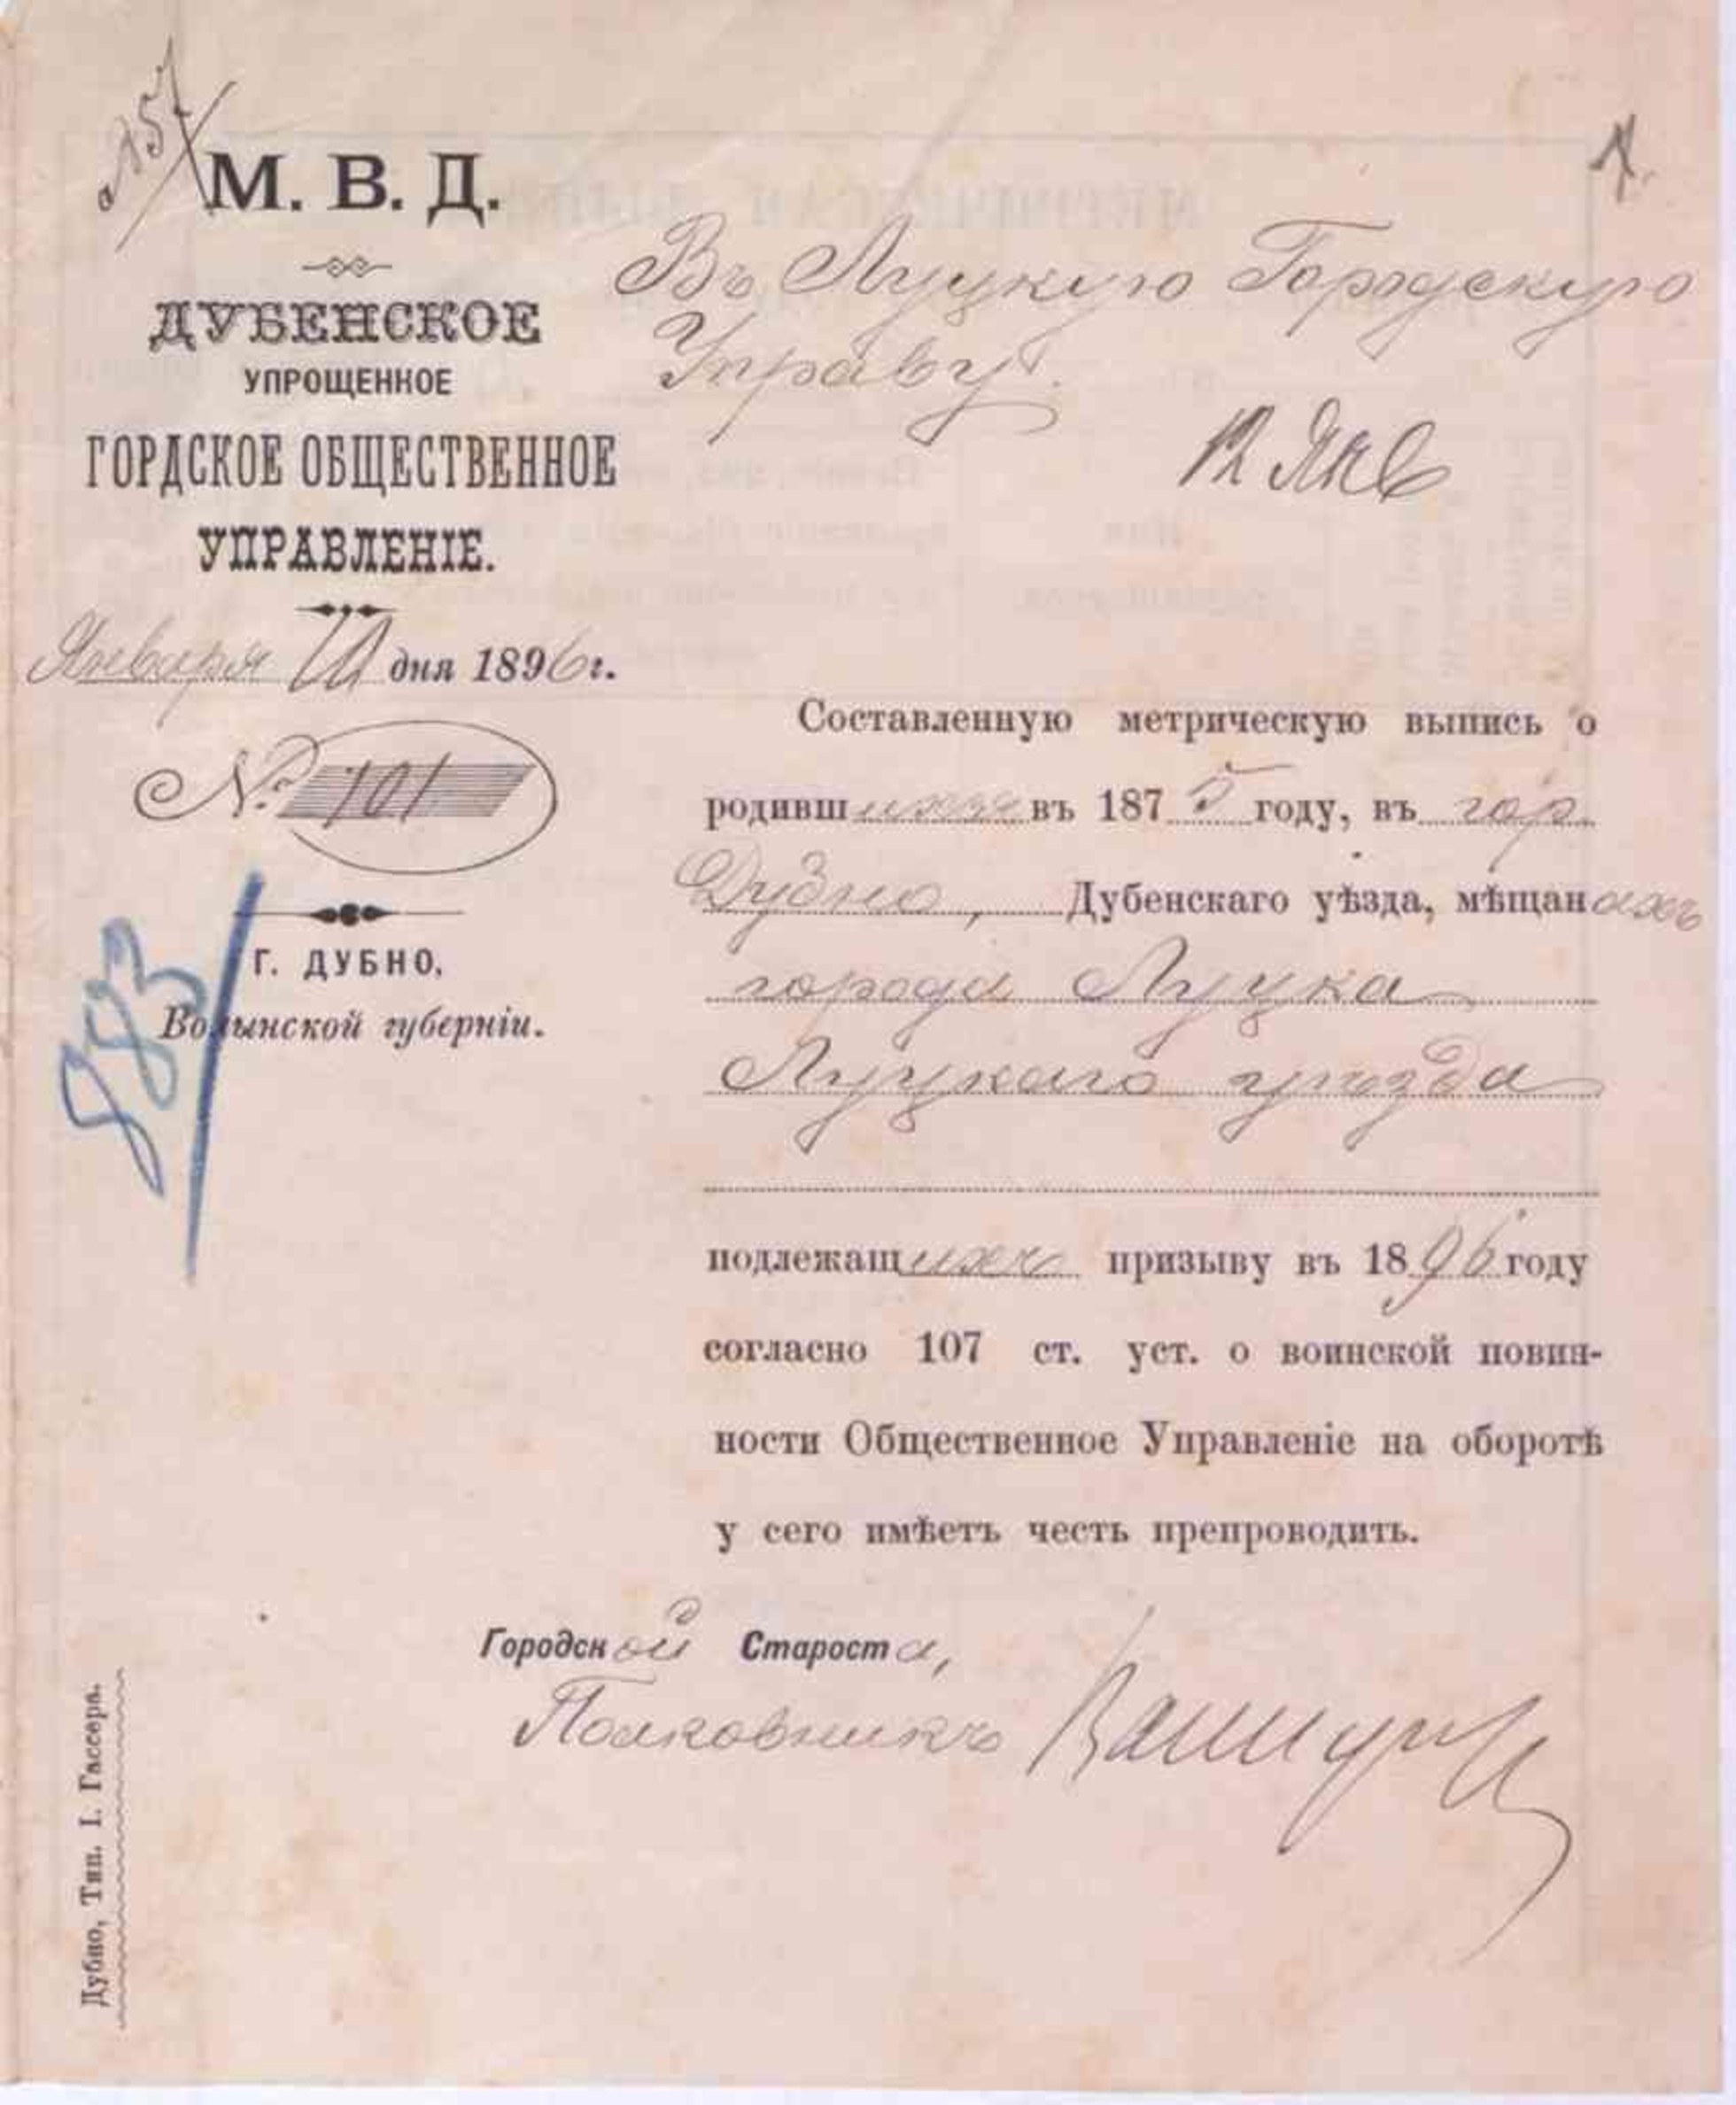 М. В. Д.
ДУБЕНСКОЕ
УПРОЩЕННОЕ
ГОРДСКОЕ ОБЩЕСТВЕННОЕ
УПРАВЛЕНІЕ.
Января 10 дня 1896 г.
№ 101
883
Г. ДУБНО,
Волынской губерніи.
Въ Луцкую Городскую
Управу.
12 Янв
Составленную метрическую выпись о
родившихся въ 1875 году, въ гор.
Дубно, Дубенскаго уѣзда, мѣщанахъ
города Луцка
Луцкаго уѣзда
подлежащихъ призыву въ 1896 году
согласно 107 ст. уст. о воинской повин-
ности Общественное Управленіе на оборотѣ
у сего имѣетъ честь препроводить.
Городской Староста,
Полковникъ
Дубно, Тип. І. Гассера.